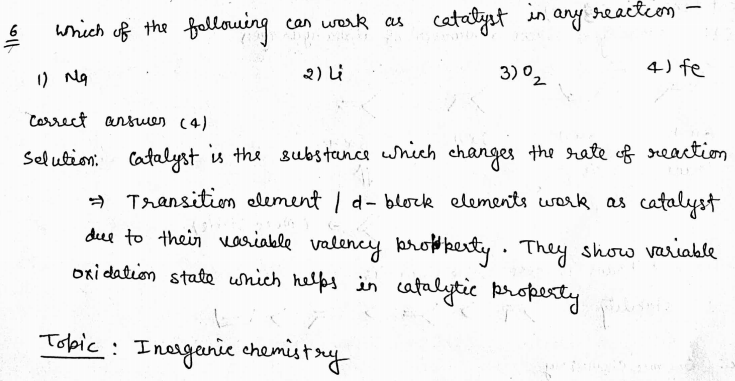 6 Which of the following can work as catalyst in any reaction –
1) Na 2) Li 3) O2 4) fe
Correct answer (4)
Solution: Catalyst is the substance which changes the rate of reaction
⇒ Transition element / d-block elements work as catalyst
due to their variable valency property. They show variable
oxidation state which helps in catalytic property
Topic : Inorganic chemistry